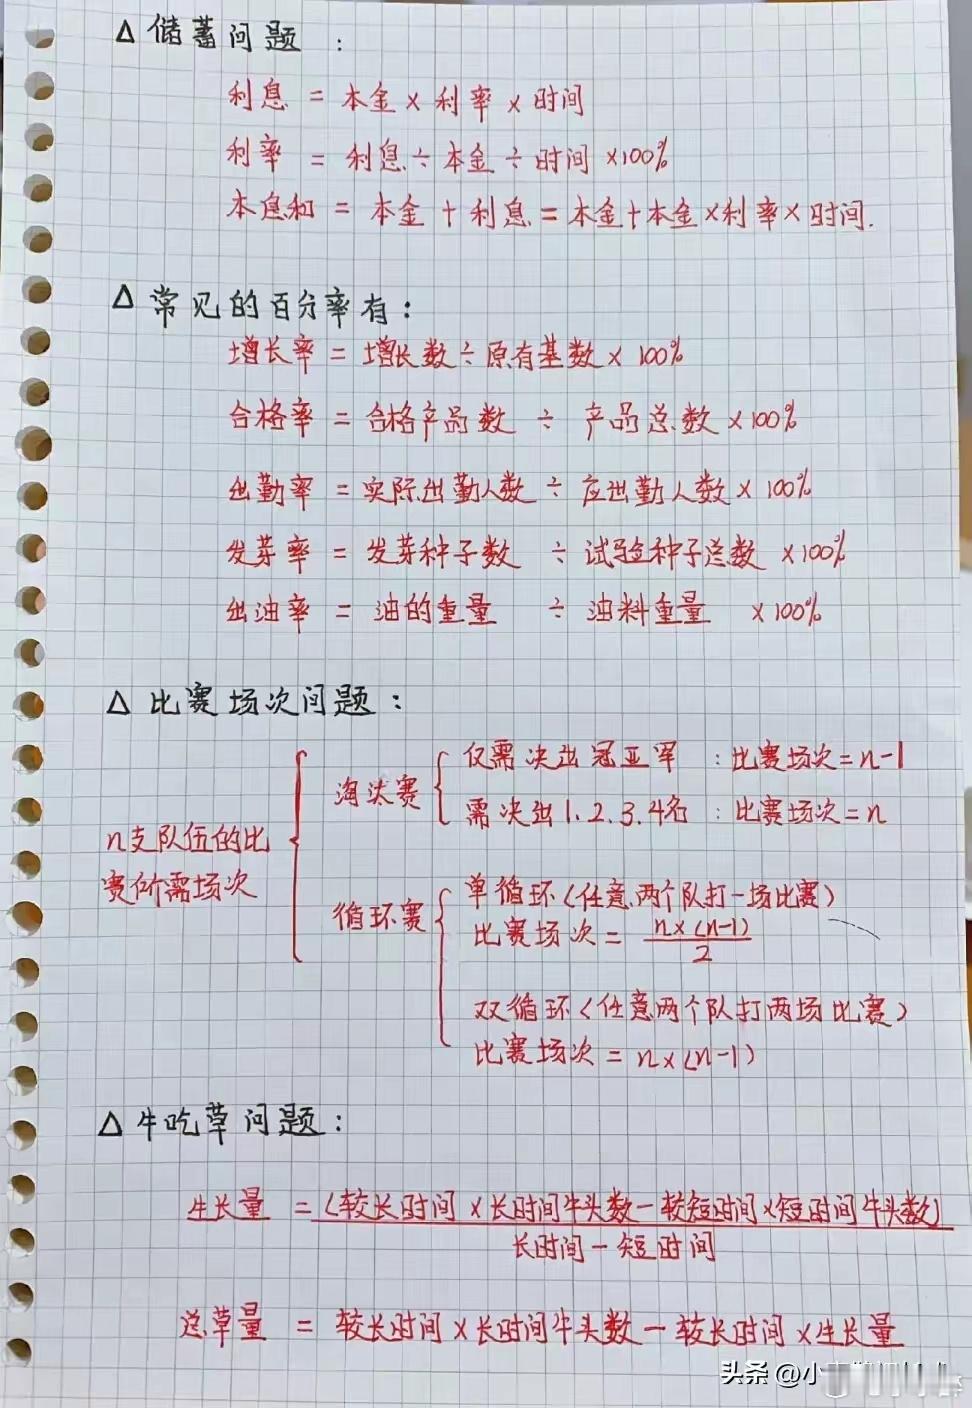 △ 储蓄问题 :
利息 = 本金 × 利率 × 时间
利率 = 利息 ÷ 本金 ÷ 时间 ×100%
本息和 = 本金 + 利息 = 本金+本金×利率×时间.
△ 常见的百分率有:
增长率 = 增长数 ÷ 原有基数 × 100%
合格率 = 合格产品数 ÷ 产品总数 × 100%
出勤率 = 实际出勤人数 ÷ 应出勤人数 × 100%
发芽率 = 发芽种子数 ÷ 试验种子总数 ×100%
出油率 = 油的重量 ÷ 油料重量 ×100%
△ 比赛场次问题:
n支队伍的比
赛所需场次
淘汰赛
仅需决出冠亚军 : 比赛场次=n-1
需决出1.2.3.4名 : 比赛场次=n
循环赛
单循环(任意两个队打一场比赛)
比赛场次 = n×(n-1)
2
双循环(任意两个队打两场比赛)
比赛场次 = n×(n-1)
△ 牛吃草问题:
生长量 = (较长时间 × 长时间牛头数-较短时间×短时间牛头数)
长时间-短时间
总草量 = 较长时间×长时间牛头数-较长时间×生长量
头条 @小